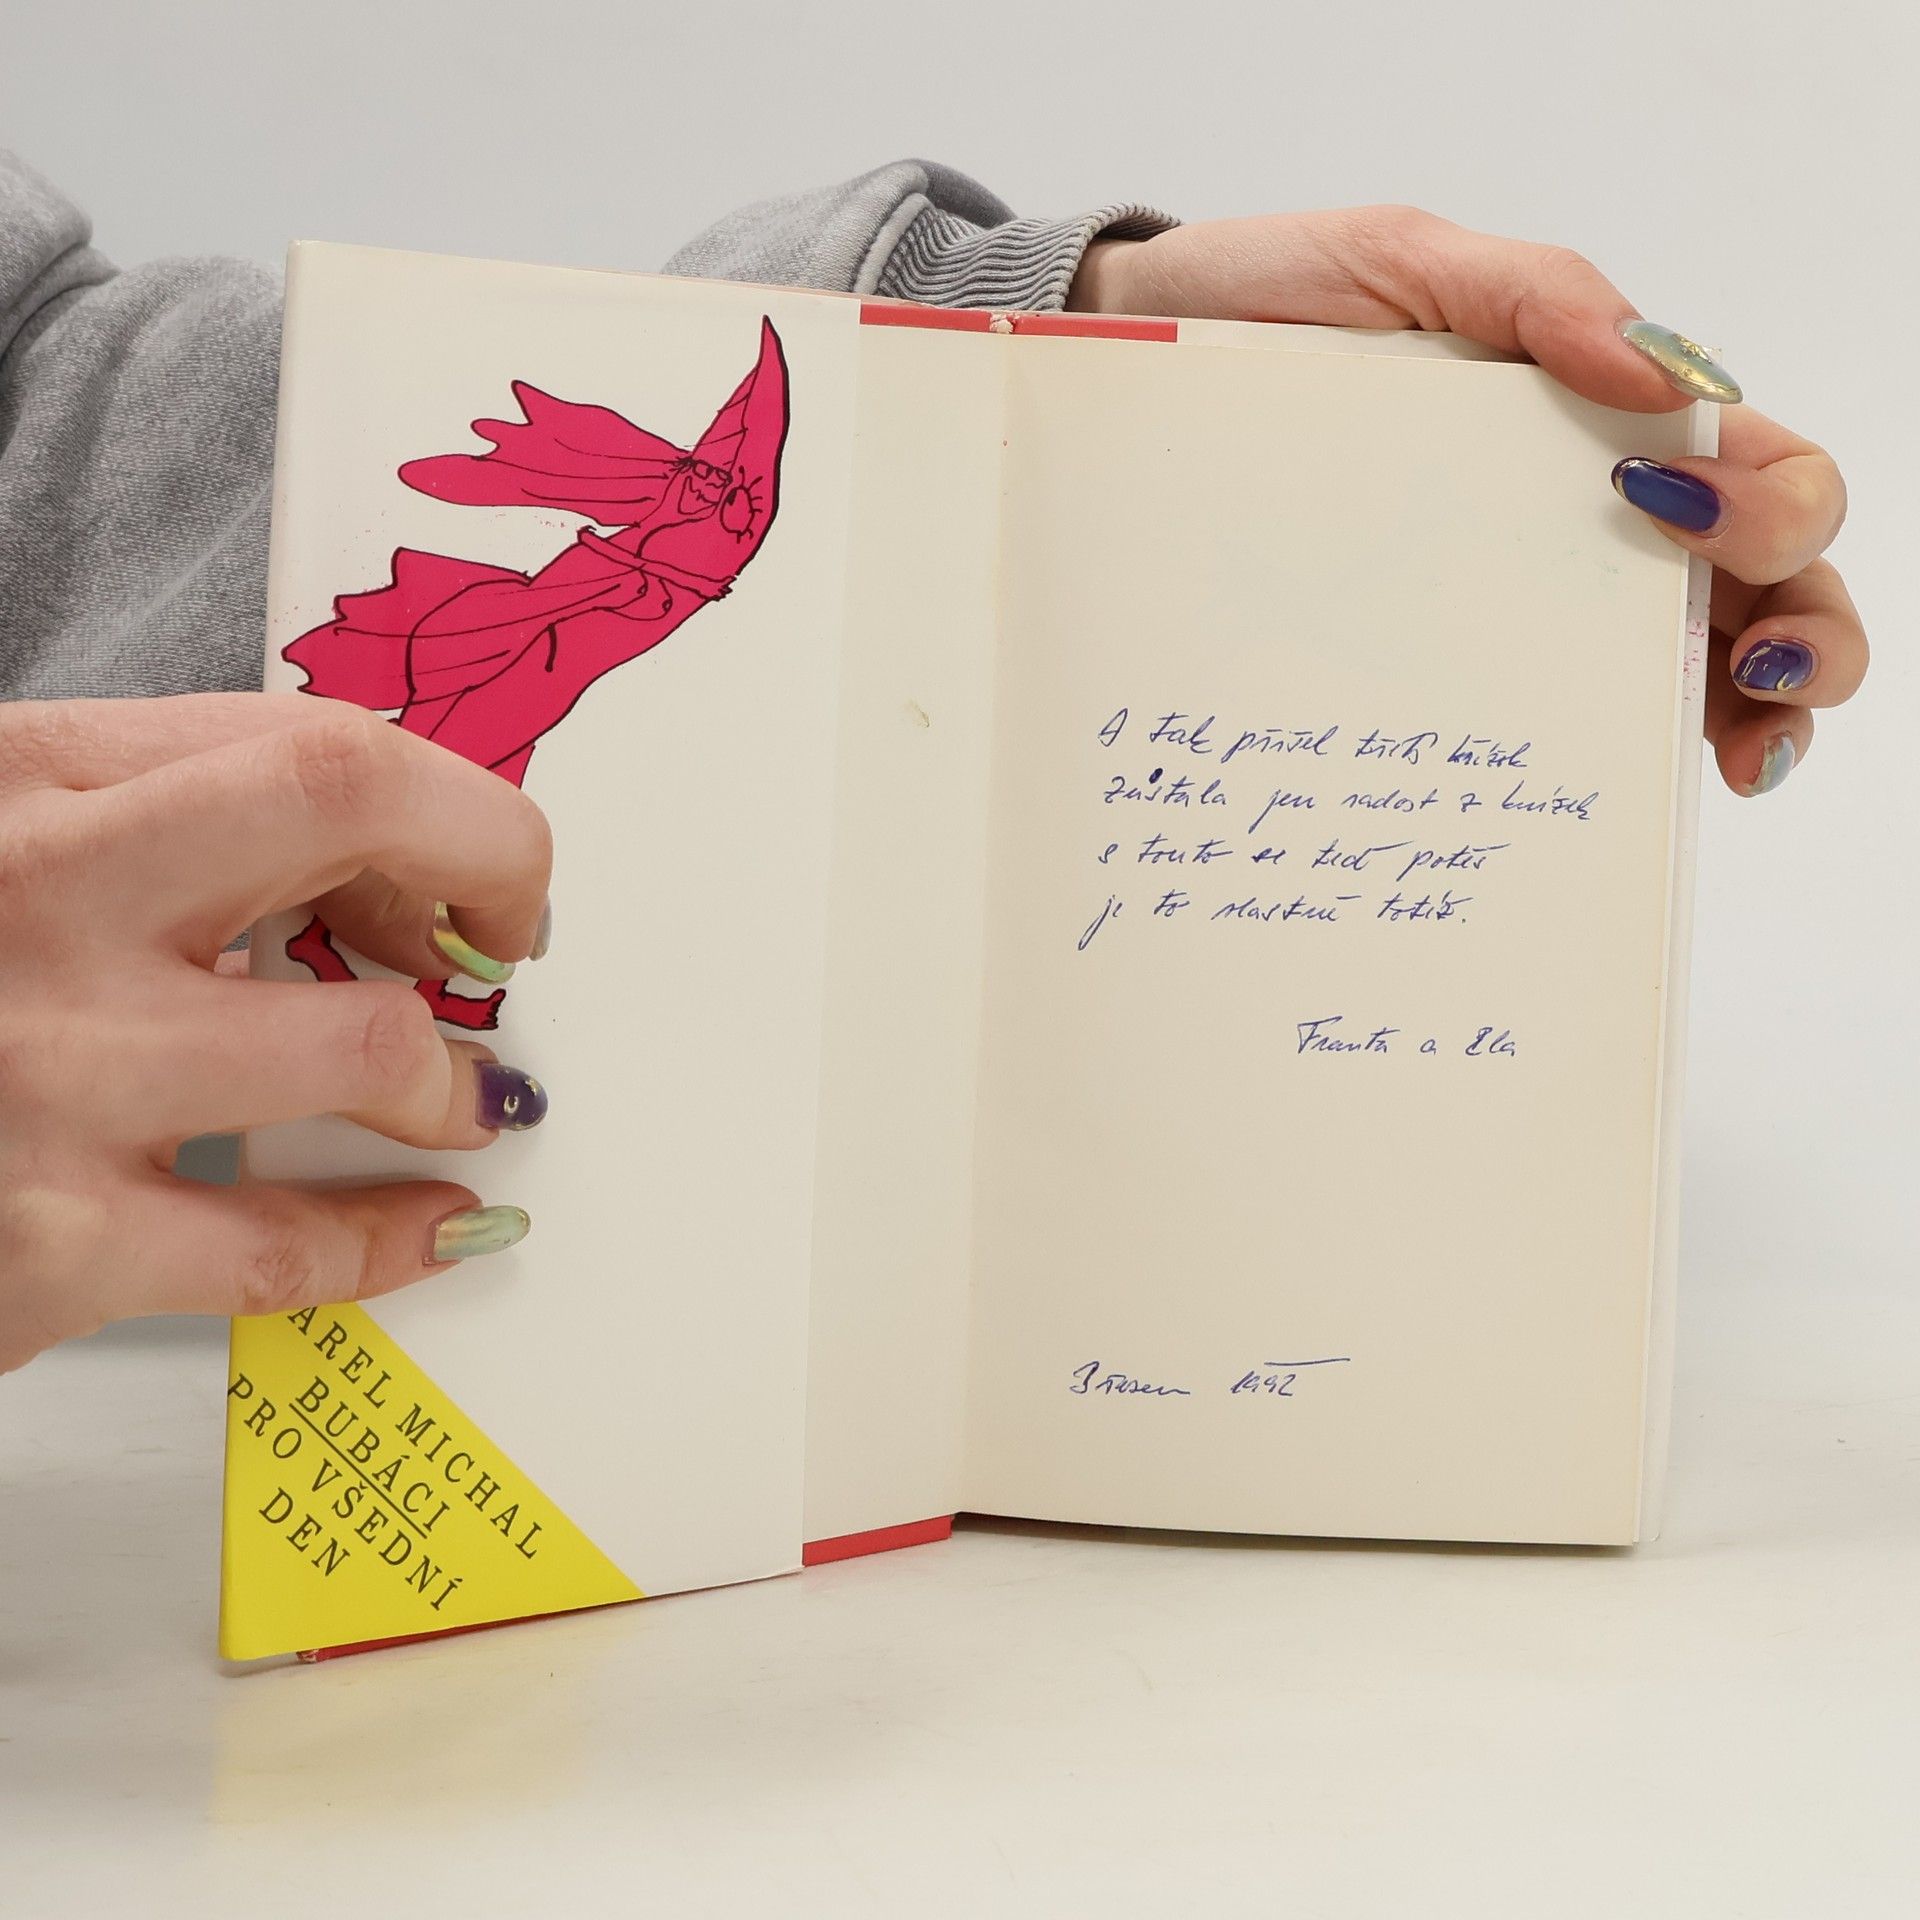 AREL MICHAL
BUBÁCI
PRO VŠEDNÍ
DEN
A tak přišel třetí křížek
zůstala jen radost z knížek
s touto se teď potěš
je to vlastně totéž.
Franta a Ela
Březen 1992